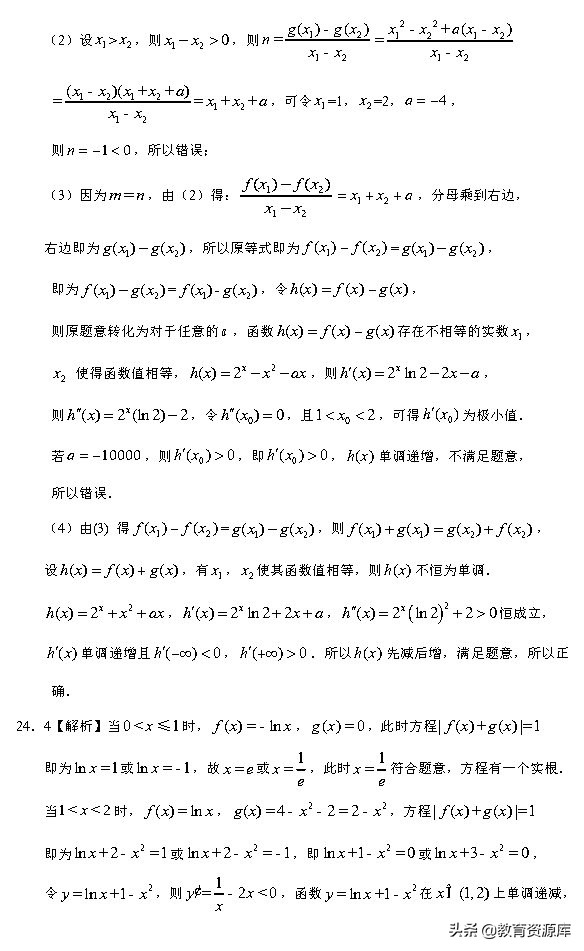 （2）设x₁>x₂，则x₁−x₂>0，则n=(g(x₁)-g(x₂))/(x₁-x₂)=(x₁²-x₂²+a(x₁-x₂))/(x₁-x₂)
=((x₁-x₂)(x₁+x₂+a))/(x₁-x₂)=x₁+x₂+a，可令x₁=1，x₂=2，a=−4，
则n=−1<0，所以错误；
（3）因为m=n，由（2）得：(f(x₁)−f(x₂))/(x₁−x₂)=x₁+x₂+a，分母乘到右边，
右边即为g(x₁)−g(x₂)，所以原等式即为f(x₁)−f(x₂)=g(x₁)−g(x₂)，
即为f(x₁)−g(x₂)=f(x₁)-g(x₂)，令h(x)=f(x)−g(x)，
则原题意转化为对于任意的a，函数h(x)=f(x)−g(x)存在不相等的实数x₁，
x₂ 使得函数值相等，h(x)=2ˣ−x²−ax，则h′(x)=2ˣln2−2x−a，
则h″(x)=2ˣ(ln2)−2，令h″(x₀)=0，且1<x₀<2，可得h′(x₀)为极小值．
若a=−10000，则h′(x₀)>0，即h′(x₀)>0，h(x)单调递增，不满足题意，
所以错误．
（4）由(3) 得f(x₁)−f(x₂)=g(x₁)−g(x₂)，则f(x₁)+g(x₁)=g(x₂)+f(x₂)，
设h(x)=f(x)+g(x)，有x₁，x₂使其函数值相等，则h(x)不恒为单调．
h(x)=2ˣ+x²+ax，h′(x)=2ˣln2+2x+a，h″(x)=2ˣ(ln2)²+2>0恒成立，
h′(x)单调递增且h′(−∞)<0，h′(+∞)>0．所以h(x)先减后增，满足题意，所以正
确．
24．4【解析】当0<x≤1时，f(x)=-lnx，g(x)=0，此时方程|f(x)+g(x)|=1
即为lnx=1或lnx=-1，故x=e或x=1/e，此时x=1/e符合题意，方程有一个实根．
当1<x<2时，f(x)=lnx，g(x)=4-x²-2=2-x²，方程|f(x)+g(x)|=1
即为lnx+2-x²=1或lnx+2-x²=-1，即lnx+1-x²=0或lnx+3-x²=0，
令y=lnx+1-x²，则y¢=1/x-2x<0，函数y=lnx+1-x²在xÎ(1,2)上单调递减，
头条 @教育资源库